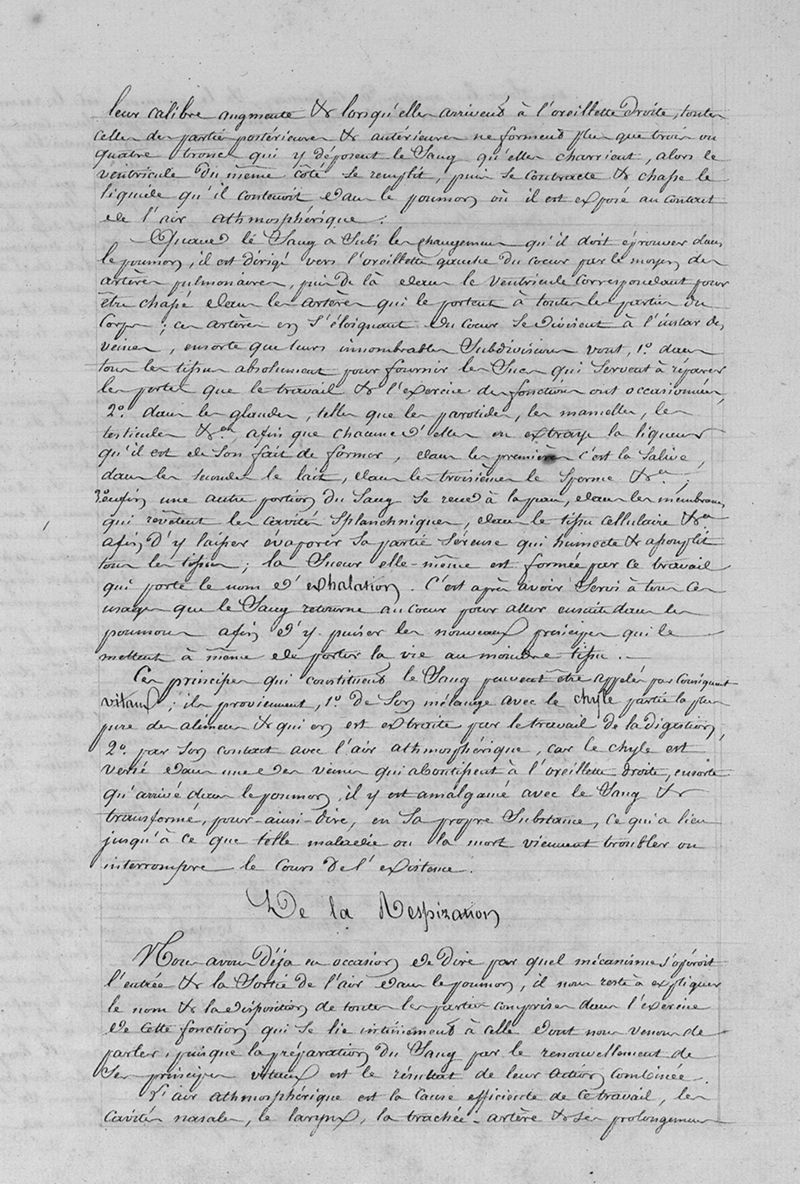 leur calibre augmente & lorsqu'elles arrivent à l'oreillette droite, toutes
celles des parties postérieures & antérieures ne forment plus que trois ou
quatre troncs qui y déposent le Sang qu'elles charrient, alors le
ventricule du même côté se remplit, puis se contracte & chasse le
liquide qu'il contenoit dans le poumon où il est exposé au contact
de l'air athmosphérique.
Quand le Sang a Subi les changemens qu'il doit éprouver dans
le poumon, il est dirigé vers l'oreillette gauche du coeur par le moyen des
artères pulmonaires, puis de là dans le ventricule correspondant pour
être chassé dans les artères qui le portent à toutes les parties du
Corps ; ces artères en s'éloignant du Coeur se divisent à l'instar des
veines, ensorte que leurs innombrables Subdivisions vont, 1.º dans
tous les tissus absolument pour fournir les Sucs qui servent à réparer
les pertes que le travail & l'exercice des fonctions ont occasionnées,
2.º dans les glandes, telles que les parotides, les mamelles, les
testicules &.ª afin que chacune d'elles en extraye la liqueur
qu'il est de Son fait de former, dans les premières c'est la Salive,
dans les secondes le lait, dans les troisièmes le Sperme &.ª ;
3.º enfin une autre portion du Sang se rend à la peau, dans les membranes
qui revêtent les cavités Splanchniques, dans le tissu cellulaire &.ª
afin d'y laisser évaporer sa partie Séreuse qui humecte & assouplit
tous les tissus ; la Sueur elle-même est formée par ce travail
qui porte le nom d'exhalation. C'est après avoir Servi à tous ces
usages que le Sang retourne au Coeur pour aller ensuite dans les
poumons afin d'y puiser les nouveaux principes qui le
mettent à même de porter la vie au moindre tissu.
Ces principes qui constituent le Sang peuvent être appelés par Conséquent
vitaux ; ils proviennent, 1.º de Son mélange avec le chyle partie la plus
pure des alimens & qui en est extraite par le travail de la digestion,
2.º par Son contact avec l'air athmosphérique, car le chyle est
versé dans une des veines qui aboutissent à l'oreillette droite, ensorte
qu'arrivé dans le poumon, il y est amalgamé avec le Sang &
transformé, pour-ainsi-dire, en Sa propre Substance, ce qui a lieu
jusqu'à ce que telle maladie ou la mort viennent troubler ou
interrompre le Cours de l'existence.
De la Respiration
Nous avons Déja eu occasion de Dire par quel mécanisme s'opéroit
l'entrée & la Sortie de l'air dans le poumon, il nous reste à expliquer
le nom & la disposition de toutes les parties comprises dans l'exercice
de cette fonction qui se lie intimement à celle dont nous venons de
parler, puisque la préparation du Sang par le renouvellement de
Ses principes vitaux est le résultat de leur action combinée.
L'air athmosphérique est la Cause efficiente de ce travail, les
Cavités nasales, le larynx, la trachée-artère & ses prolongemens